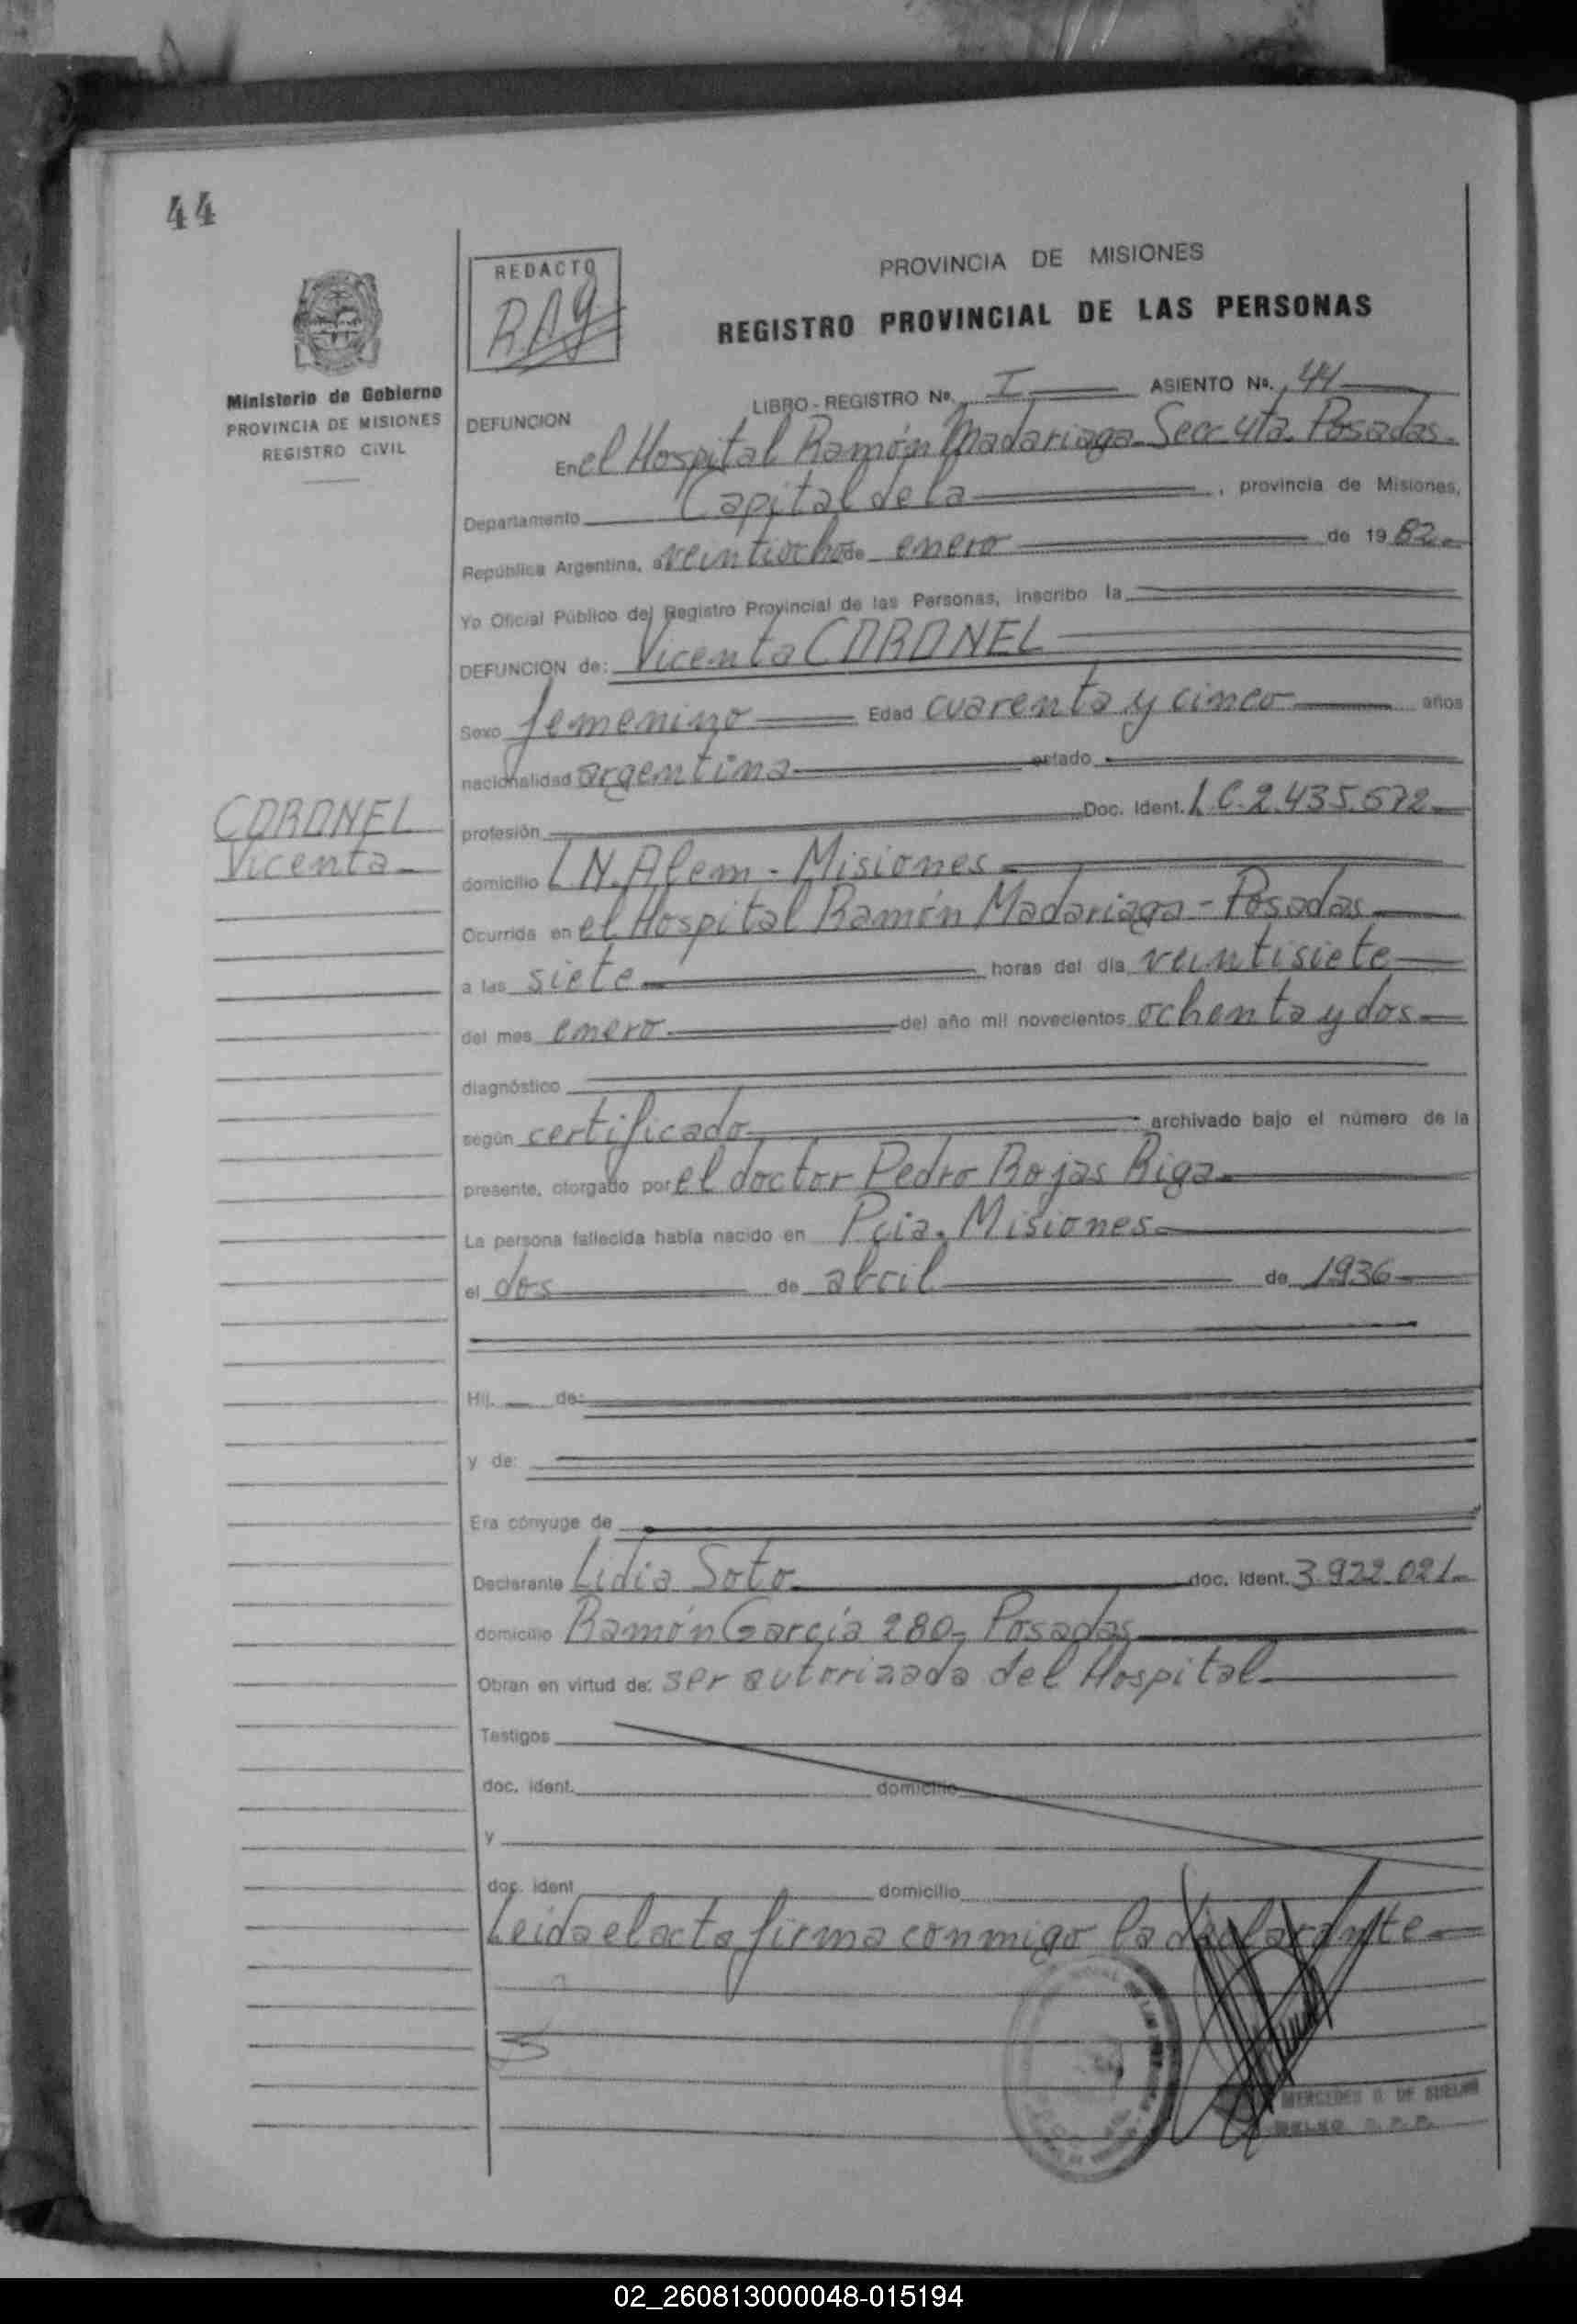 44
REDACTO
R.A.g
PROVINCIA DE MISIONES
REGISTRO PROVINCIAL DE LAS PERSONAS
Ministerio de Gobierno
PROVINCIA DE MISIONES
REGISTRO CIVIL
LIBRO - REGISTRO No. I ASIENTO No. 44
DEFUNCION
En el Hospital Ramón Madariaga Secc 4ta. Posadas.
Departamento Capital de la , provincia de Misiones,
República Argentina, a veintiocho de enero de 1982.
Yo Oficial Público del Registro Provincial de las Personas, inscribo la
DEFUNCION de: Vicenta CORONEL
Sexo femenino Edad cuarenta y cinco años
nacionalidad argentina estado
CORONEL
Vicenta
profesión Doc. Ident. L.C. 2.435.672
domicilio L.N. Alem - Misiones
Ocurrida en el Hospital Ramón Madariaga - Posadas
a las siete horas del día veintisiete
del mes enero del año mil novecientos ochenta y dos
diagnóstico
según certificado archivado bajo el número de la
presente, otorgado por el doctor Pedro Rojas Riga
La persona fallecida había nacido en Pcia. Misiones
el dos de abril de 1936
Hij. de:
y de:
Era cónyuge de
Declarante Lidia Soto doc. Ident. 3.922.021
domicilio Ramón García 280- Posadas
Obran en virtud de: ser autorizada del Hospital
Testigos
doc. ident. domicilio
y
doc. ident domicilio
Leida el acta firma conmigo la declarante
MERCEDES DE
02_260813000048-015194